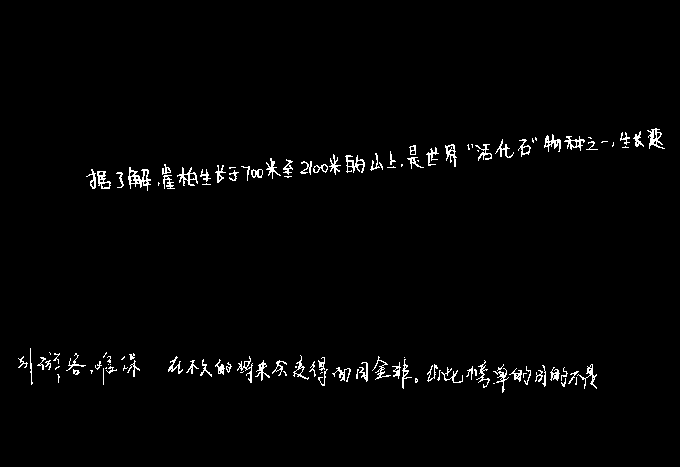 据了解,崖柏生长于700米至2100米的山上,是世界“活化石”物种之一,生长
客,难保 在不久的将来会变得面目全非。 此榜单的目的不是